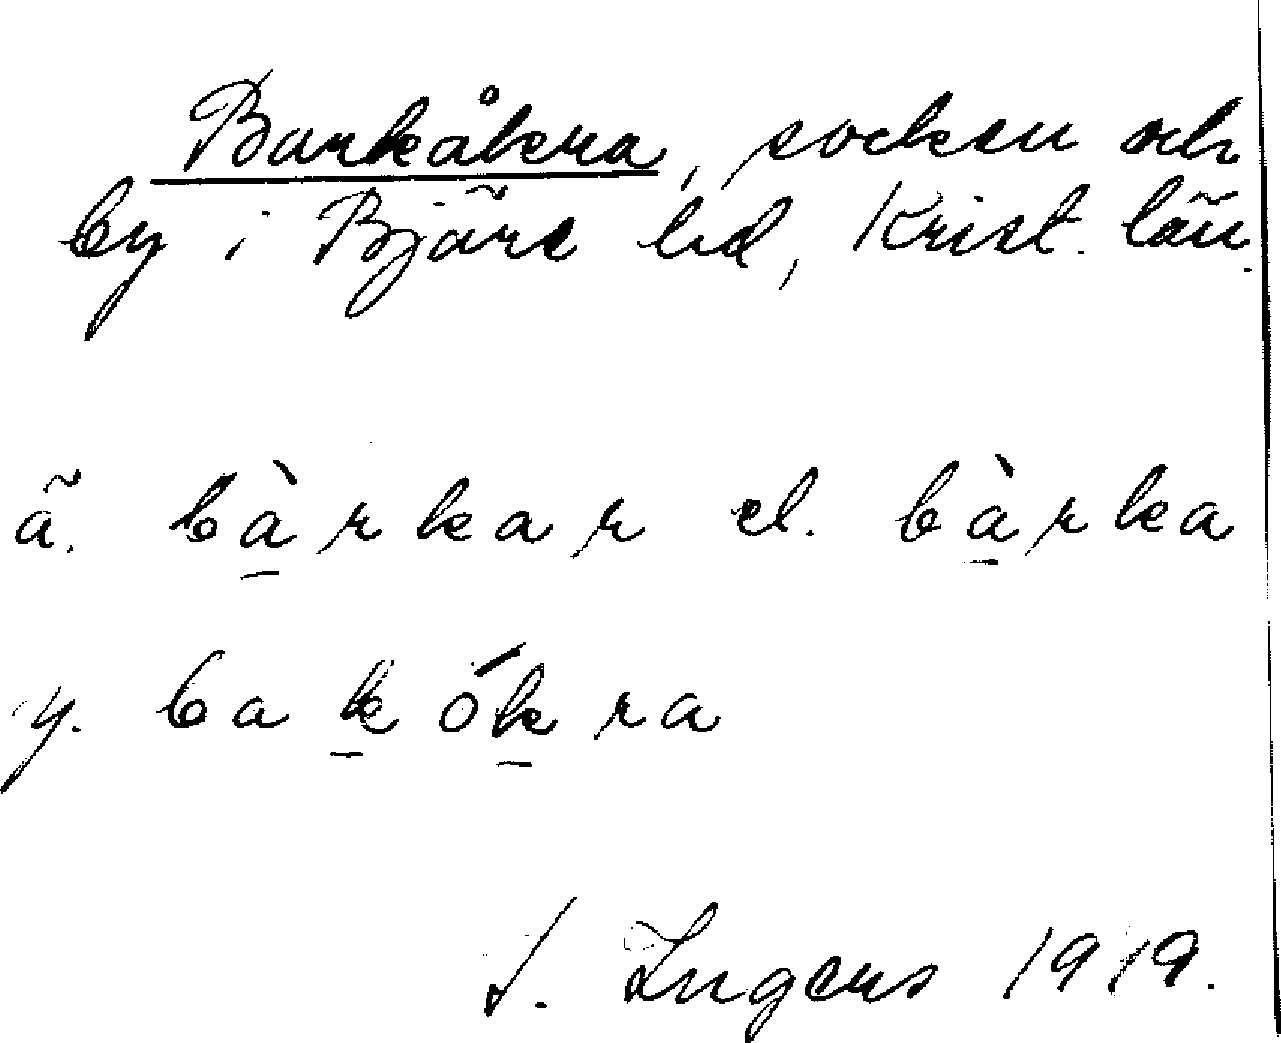 Barkåkra, socken och
by i Bjäre hd, Krist. län.
ä. bàrkar el. bàrka
y. bakókra
I. Ingers 1919.